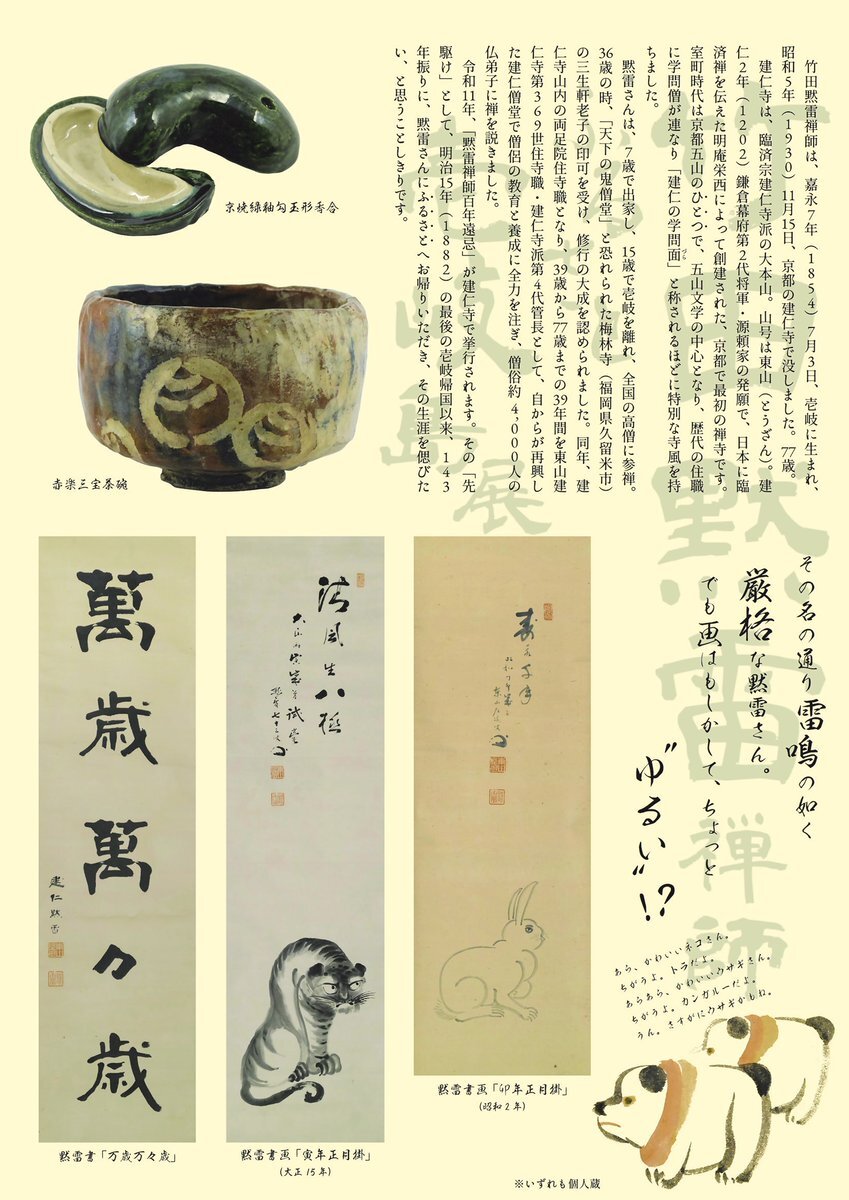 竹田黙雷禅師は、嘉永７年（１８５４）７月３日、壱岐に生まれ、
昭和５年（１９３０）１１月１５日、京都の建仁寺で没しました。７７歳。
建仁寺は、臨済宗建仁寺派の大本山。山号は東山（とうざん）。建
仁２年（１２０２）鎌倉幕府第２代将軍・源頼家の発願で、日本に臨
済禅を伝えた明庵栄西によって創建された、京都で最初の禅寺です。
室町時代は京都五山のひとつで、五山文学の中心となり、歴代の住職
に学問僧が連なり「建仁の学問面」と称されるほどに特別な寺風を持
づら
ちました。
黙雷さんは、７歳で出家し、１５歳で壱岐を離れ、全国の高僧に参禅。
３６歳の時、「天下の鬼僧堂」と恐れられた梅林寺（福岡県久留米市）
の三生軒老子の印可を受け、修行の大成を認められました。同年、建
仁寺山内の両足院住寺職となり、３９歳から７７歳までの３９年間を東山建
仁寺第３６９世住寺職・建仁寺派第４代管長として、自からが再興し
た建仁僧堂で僧侶の教育と養成に全力を注ぎ、僧俗約４,０００人の
仏弟子に禅を説きました。
令和１１年、「黙雷禅師百年遠忌」が建仁寺で挙行されます。その「先
駆け」として、明治１５年（１８８２）の最後の壱岐帰国以来、１４３
年振りに、黙雷さんにふるさとへお帰りいただき、その生涯を偲びた
い、と思うことしきりです。
京焼緑釉勾玉形香合
赤楽三宝茶碗
竹田黙雷禅師
壱岐島展
その名の通り雷鳴の如く
厳格な黙雷さん。
でも画はもしかして、ちょっと
“ゆるい”!?
あら、かわいいネコさん。
ちがうよ。トラだよ。
あらあら、かわいいウサギさん。
ちがうよ。カンガルーだよ。
うん。さすがにウサギかもね。
壽
清風生八極
萬歳萬々歳
建仁黙雷
黙雷書画「卯年正月掛」
（昭和２年）
黙雷書画「寅年正月掛」
（大正１５年）
黙雷書「万歳万々歳」
※いずれも個人蔵